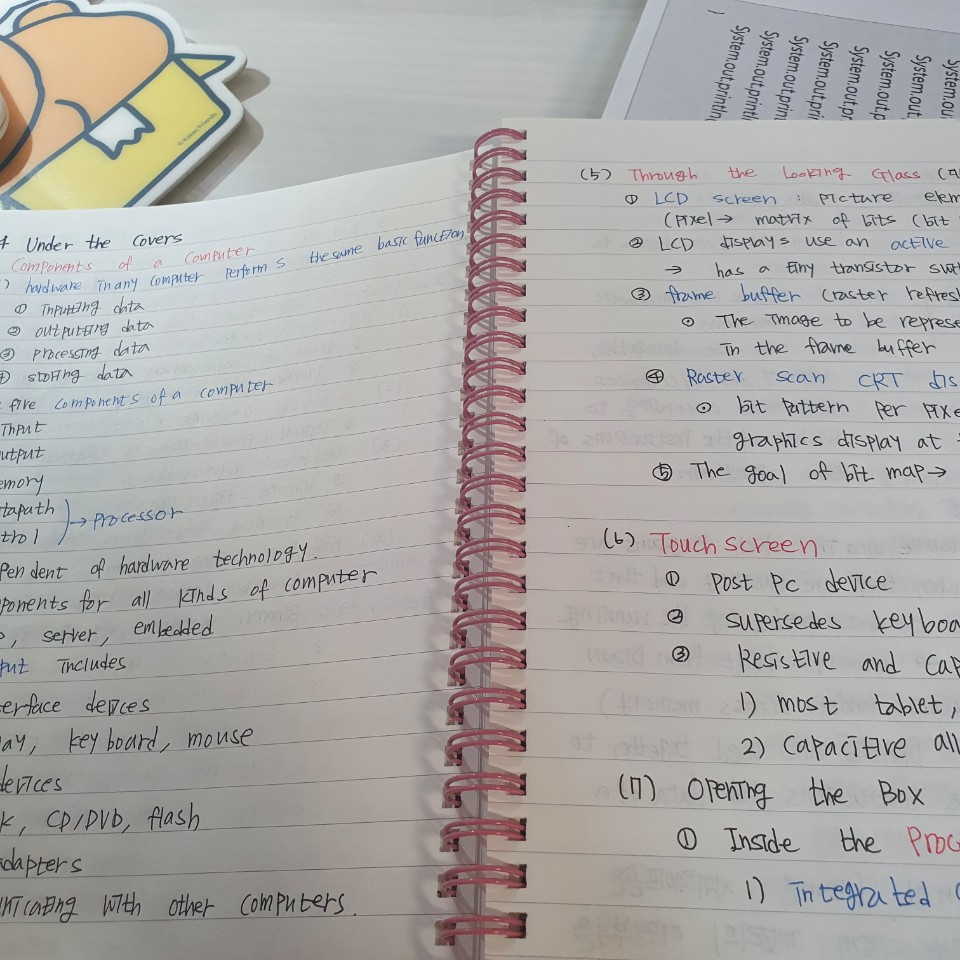 © Kakao Friends
System.out.println
System.out.printl
System.out.pri
System.out.pri
System.out.pr
System.out.p
System.out.
System.ou
)
Under the Covers
Components of a Computer
) hardware in any computer performs the same basic function
① inputting data
② outputting data
③ processing data
④ storing data
five components of a computer
input
utput
emory
tapath
trol
→ processor
pendent of hardware technology.
ponents for all kinds of computer
, server, embedded
put includes
erface devices
ay, keyboard, mouse
devices
k, CD/DVD, flash
adapters
nicating with other computers.
(5) Through the Looking Glass
① LCD screen : picture elem
(pixel → matrix of bits (bit
② LCD displays use an active
→ has a tiny transistor swit
③ frame buffer (raster refresh
⊙ The image to be represe
in the frame buffer
④ Raster scan CRT dis
⊙ bit pattern per pixe
graphics display at
⑤ The goal of bit map →
(6) Touch screen
① post pc device
② supersedes keyboa
③ Resistive and cap
1) most tablet,
2) capacitive all
(7) Opening the Box
① Inside the Proc
1) integrated